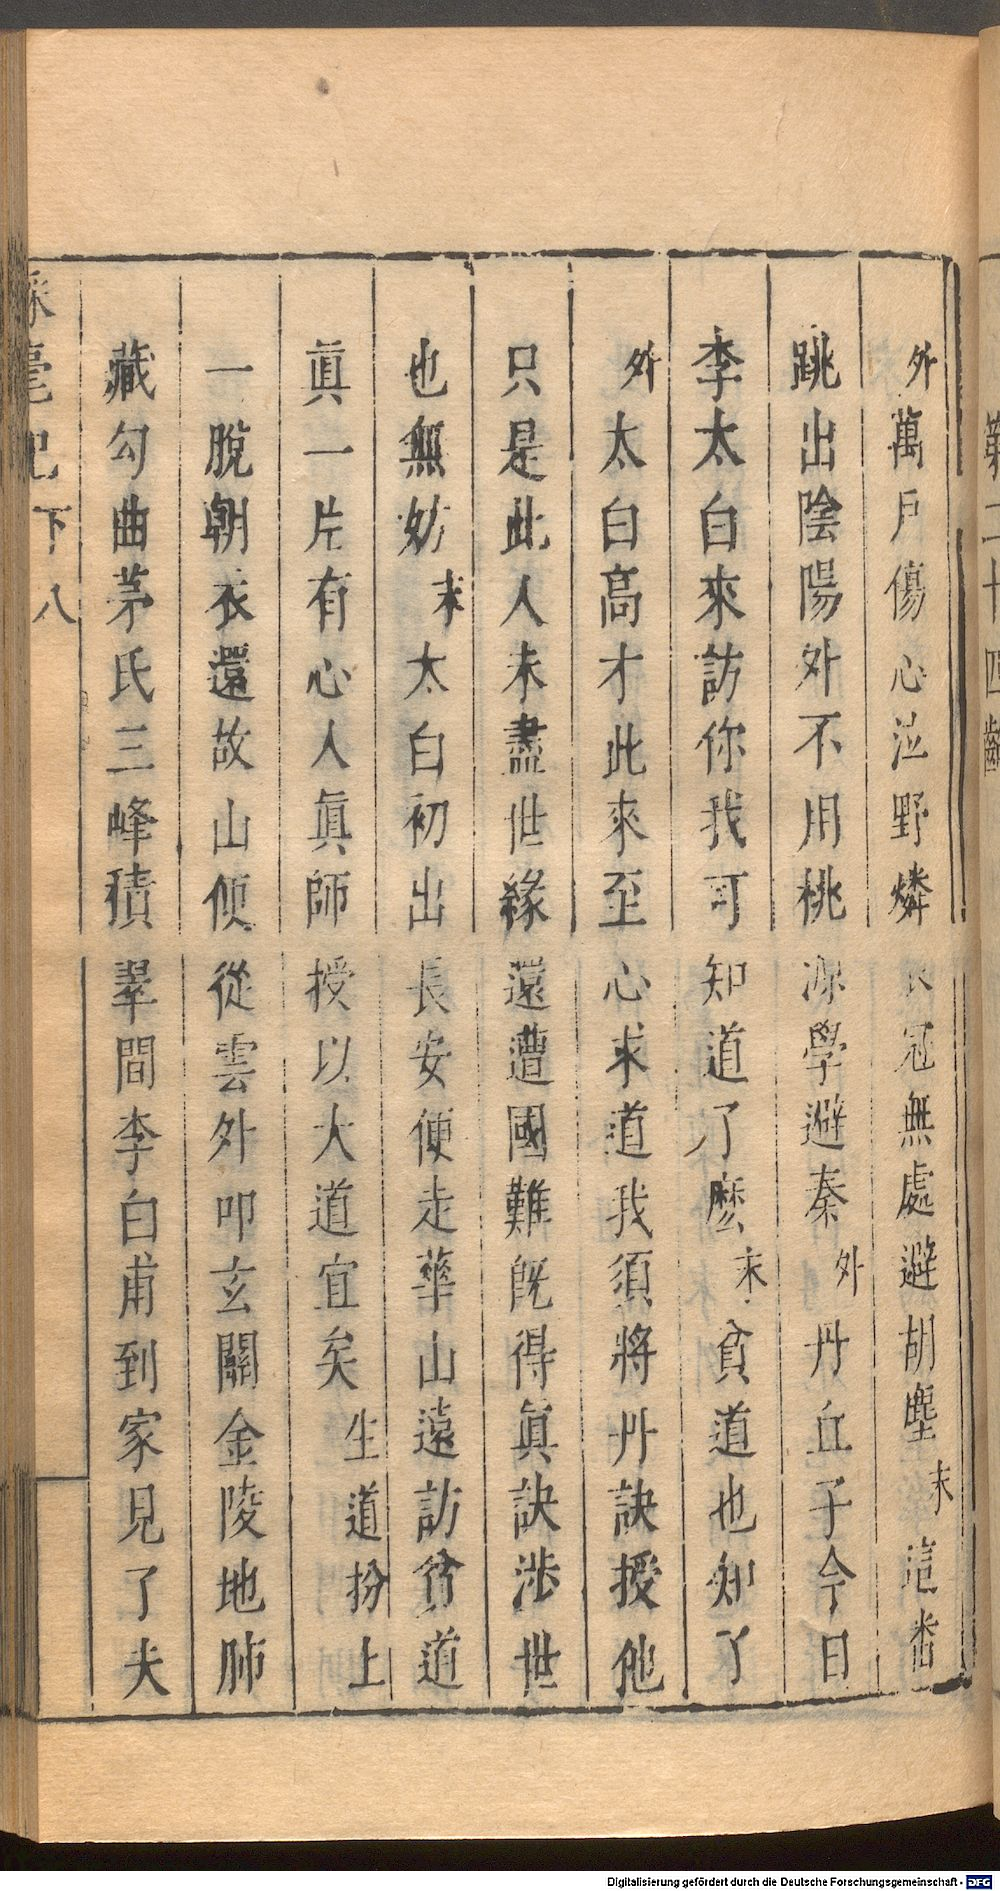 外萬戶傷心泣野燐衣冠無處避胡塵末這番
跳出陰陽外不用桃源學避秦外丹丘子今日
李太白來訪你我可知道了麼末貧道也知了
外太白高才此來至心求道我須將丹訣授他
只是此人未盡世緣還遭國難旣得眞訣涉世
也無妨末太白初出長安便走華山遠訪貧道
眞一片有心人眞師授以大道宜矣生道扮上
一脫朝衣還故山便從雲外叩玄關金陵地肺
藏勾曲茅氏三峰積翠間李白甫到家見了夫
彩毫記 下 八
二十四齣
Digitalisierung gefördert durch die Deutsche Forschungsgemeinschaft - DFG